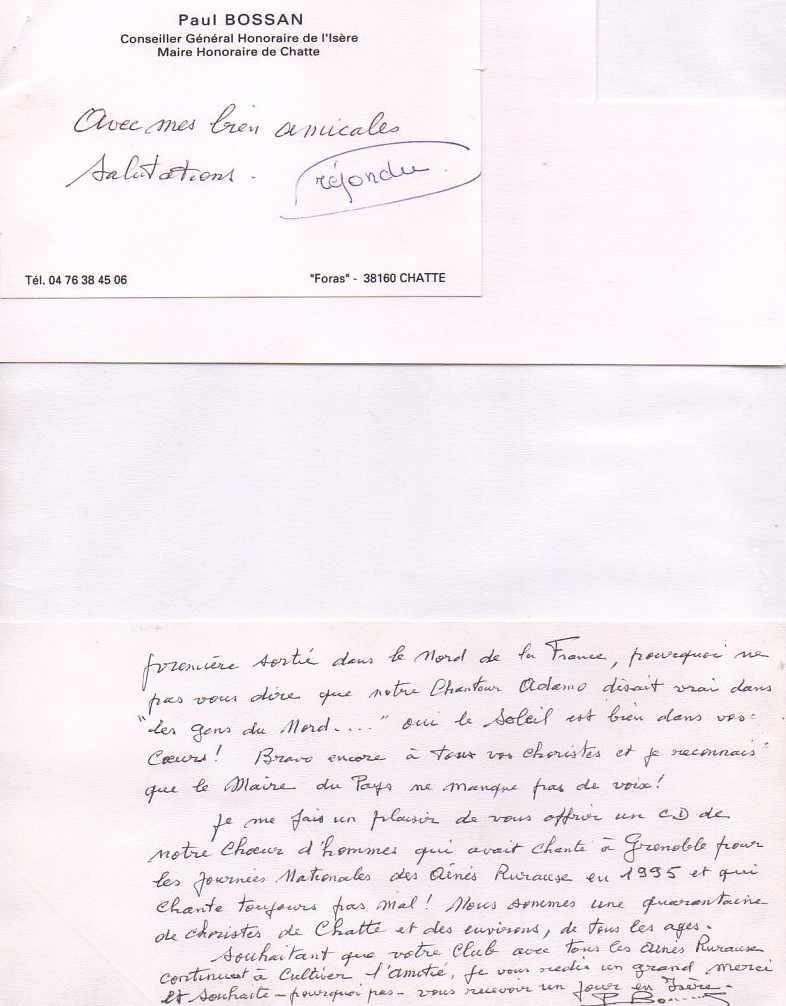 Paul BOSSAN
Conseiller Général Honoraire de l'Isère
Maire Honoraire de Chatte
Avec mes bien amicales
salutations.
répondu
Tél. 04 76 38 45 06
"Foras" - 38160 CHATTE
première sortie dans le Nord de la France, pourquoi ne
pas vous dire que notre Chanteur Adamo disait vrai dans
"les gens du Nord...." oui le Soleil est bien dans vos
Cœurs! Bravo encore à tous vos choristes et je reconnais
que le Maire du Pays ne manque pas de voix!
Je me fais un plaisir de vous offrir un CD de
notre Chœur d'hommes qui avait chanté à Grenoble pour
les Journées Nationales des Aînés Ruraux en 1995 et qui
Chante toujours pas mal! Nous sommes une quarantaine
de choristes de Chatte et des environs, de tous les ages.
Souhaitant que votre Club avec tous les Aînés Ruraux
continuent à Cultiver l'amitié, je vous redis un grand merci
et souhaite - pourquoi pas - vous recevoir un Jour en Isère.
P. Bossan